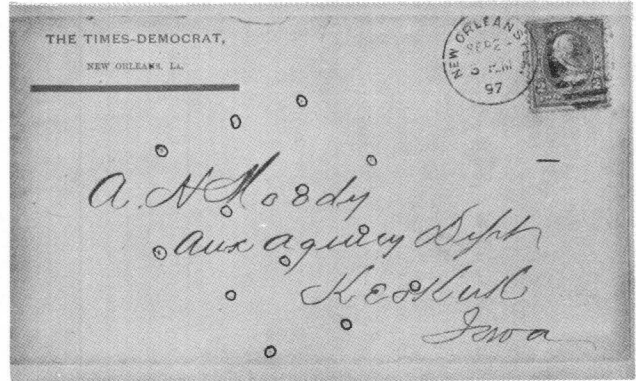 THE TIMES-DEMOCRAT,
NEW ORLEANS, LA.
NEW ORLEANS, LA.
SEP 2
3 PM
97
A. N Moody
Aux Agency Dept
Keokuk
Iowa